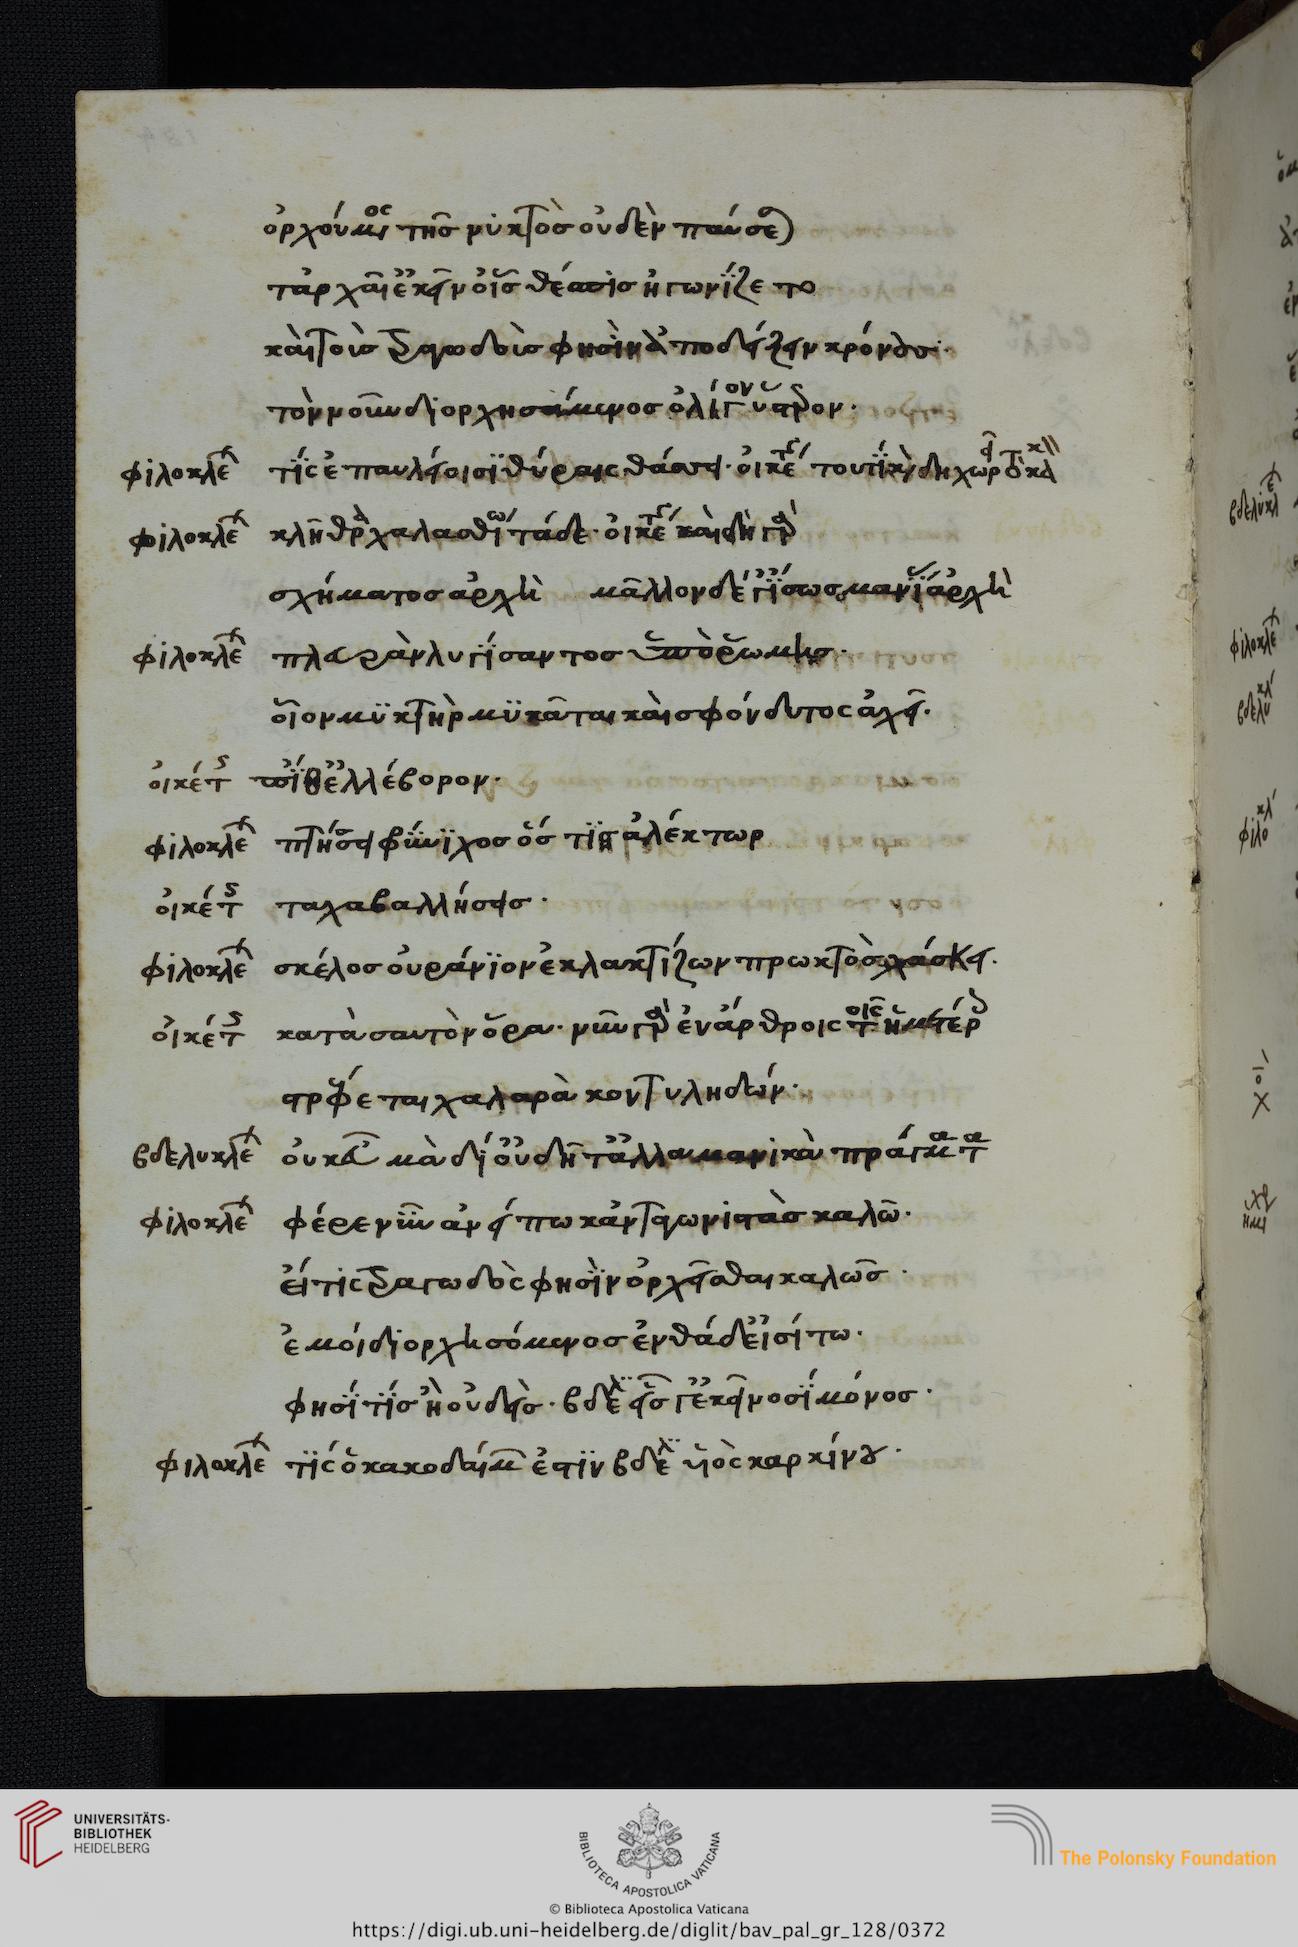 ὀρχούμενος τῆς νυκτὸς οὐδὲν παύσεται
τἀρχαῖ ἐκεῖν οἷς θέσπις ἠγωνίζετο
καὶ τοὺς τραγωδοὺς φησὶν ἀποδείξειν κρόνους·
τὸν νοῦν διορχησάμενος ὀλίγον ὕστερον·
φιλοκλέ τίς ἐπ αυλείοισι θύραις θάσσει· οἰκέτης τουτὶ καὶ δὴ χωρεῖ τὸ κακ
φιλοκλέ κλῆθρα χαλάσθω τάδε· οἰκέτης καὶ δὴ γὰρ
σχήματος ἀρχὴ μᾶλλον δέ γ ἴσως μανίας ἀρχὴ
φιλοκλέ πλευρὰν λυγίσαντος ὑπὸ ῥώμης·
οἷον μυκτὴρ μυκᾶται καὶ σφόνδυλος ἀχεῖ·
οἰκέτης πῖθ ἐλλέβορον·
φιλοκλέ πτήσσει φρύνιχος ὥς τις ἀλέκτωρ
οἰκέτης ταχα βαλλήσεις·
φιλοκλέ σκέλος οὐράνιον ἐκλακτίζων πρωκτὸς χάσκει·
οἰκέτης κατὰ σαυτὸν ὅρα· νῦν γὰρ ἐν ἄρθροις τοῖς ἡμετέρ
στρέφεται χαλαρὰ κοντυληδών·
βδελυκλέ οὐκ εὖ μὰ δί οὐ δῆτ ἀλλα μανικὰ πράγματα
φιλοκλέ φέρε νῦν ἀνείπω κἀνταγωνιστὰς καλῶ·
εἴ τις τραγωδὸς φησὶν ὀρχεῖσθαι καλῶς·
ἐμοί διορχησόμενος ἐνθάδ εἰσίτω·
φησί τίς ἢ οὐδείς· βδελ εἷς γ ἐκεῖνοσὶ μόνος·
φιλοκλέ τίς ὁ κακοδαίμων ἐστὶν βδελ υἱὸς καρκίνου·
UNIVERSITÄTS-
BIBLIOTHEK
HEIDELBERG
BIBLIOTECA APOSTOLICA VATICANA
© Biblioteca Apostolica Vaticana
The Polonsky Foundation
https://digi.ub.uni-heidelberg.de/diglit/bav_pal_gr_128/0372